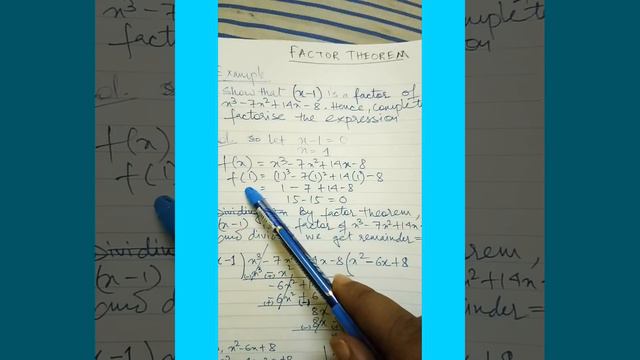 FACTOR THEOREM
Example
Show that (x-1) is a factor of
x³-7x²+14x-8. Hence, complete
factorise the expression
so let x-1=0
x=1
f(x) = x³-7x²+14x-8
f(1) = (1)³-7(1)²+14(1)-8
= 1-7+14-8
15-15=0
By factor theorem,
(x-1) factor of x³-7x²+14x
and divi we get remainder=
x-1) x³-7 4x-8(x²-6x+8
-6x²+
8x
8x
x²-6x+8